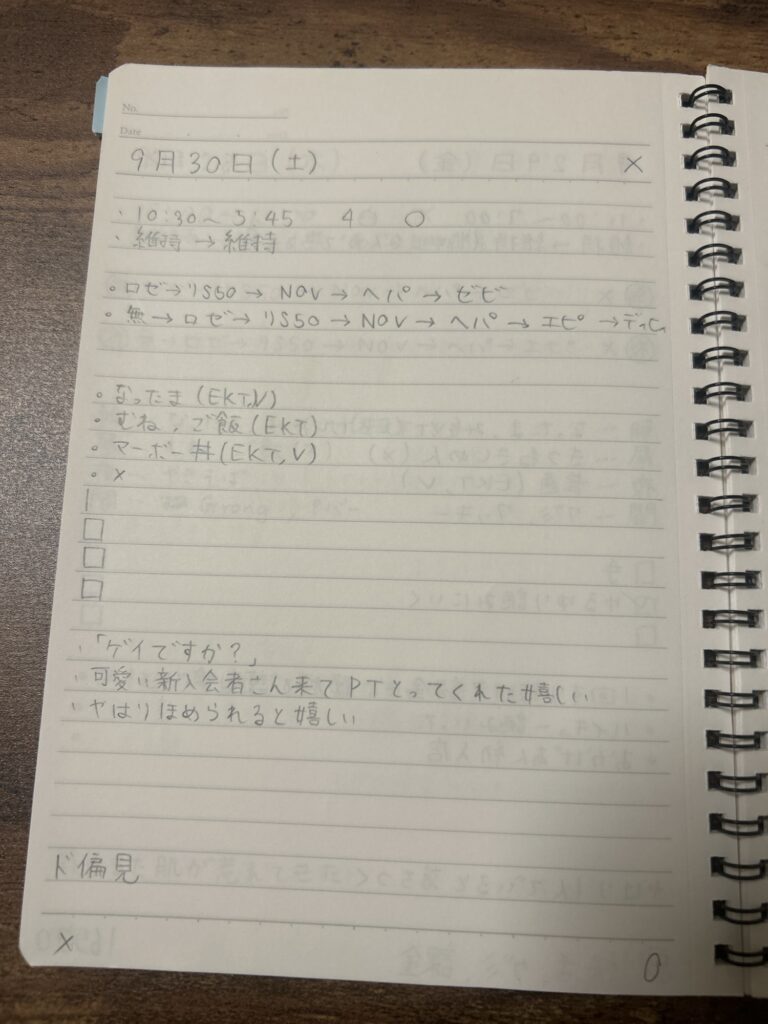 No.
Date
9月30日(土) ×
・10:30〜5:45 4 ○
・維持→維持
・ロゼ→リS50→NOV→ヘパ→ゼビ
・無→ロゼ→リS50→NOV→ヘパ→エピ→ディ
・なったま(EKT,V)
・むね,ご飯(EKT)
・マーボー丼(EKT,V)
・×
・「ゲイですか?」
・可愛い新入会者さん来てPTとってくれた嬉しい
・ヤはりほめられると嬉しい
ド偏見
× 0